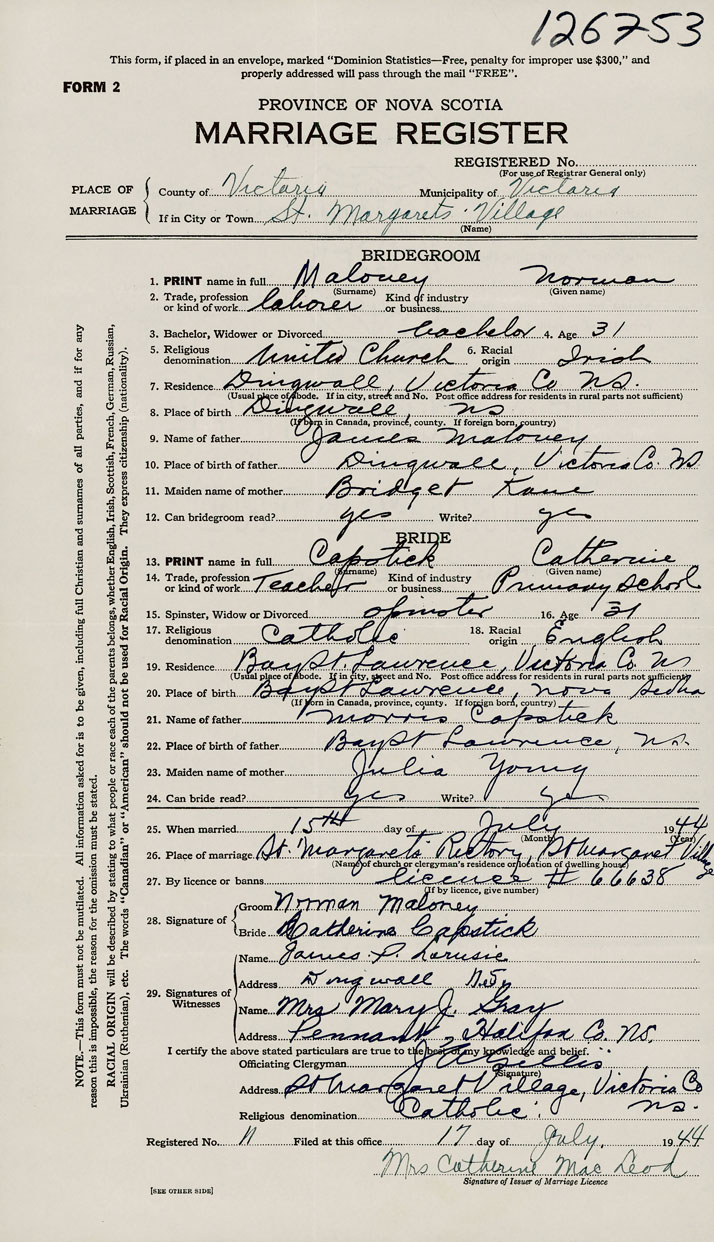 126753
This form, if placed in an envelope, marked "Dominion Statistics—Free, penalty for improper use $300," and
properly addressed will pass through the mail "FREE".
FORM 2
PROVINCE OF NOVA SCOTIA
MARRIAGE REGISTER
REGISTERED No.
(For use of Registrar General only)
PLACE OF MARRIAGE
County of Victoria Municipality of Victoria
If in City or Town St. Margarets Village
(Name)
BRIDEGROOM
1. PRINT name in full Maloney Norman
(Surname) (Given name)
2. Trade, profession or kind of work laborer Kind of industry or business
3. Bachelor, Widower or Divorced bachelor 4. Age 31
5. Religious denomination United Church 6. Racial origin Irish
7. Residence Dingwall, Victoria Co NS.
(Usual place of abode. If in city, street and No. Post office address for residents in rural parts not sufficient)
8. Place of birth Dingwall, NS
(If born in Canada, province, county. If foreign born, country)
9. Name of father James Maloney
10. Place of birth of father Dingwall, Victoria Co. NS
11. Maiden name of mother Bridget Kane
12. Can bridegroom read? yes Write? yes
BRIDE
13. PRINT name in full Capstick Catherine
(Surname) (Given name)
14. Trade, profession or kind of work Teacher Kind of industry or business Primary School
15. Spinster, Widow or Divorced spinster 16. Age 31
17. Religious denomination Catholic 18. Racial origin English
19. Residence Bay St. Lawrence, Victoria Co NS
(Usual place of abode. If in city, street and No. Post office address for residents in rural parts not sufficient)
20. Place of birth Bay St Lawrence, Nova Scotia
(If born in Canada, province, county. If foreign born, country)
21. Name of father Morris Capstick
22. Place of birth of father Bay St Lawrence, NS.
23. Maiden name of mother Julia Young
24. Can bride read? yes Write? yes
25. When married 15th day of July 1944
(Month) (Year)
26. Place of marriage St. Margarets Rectory, St Margaret Village
(Name of church or clergyman's residence or location of dwelling house)
27. By licence or banns licence # 66638
(If by licence, give number)
28. Signature of Groom Norman Maloney
Bride Catherine Capstick
29. Signatures of Witnesses
Name James P.
Address Dingwall N.S.
Name Mrs Mary J. Gray
Address Pennant, Halifax Co. NS.
I certify the above stated particulars are true to the best of my knowledge and belief.
Officiating Clergyman J A Gillis
(Signature)
Address St Margaret Village, Victoria Co
Religious denomination Catholic. NS.
Registered No. 11 Filed at this office 17 day of July, 1944
Mrs Catherine Mac Leod
Signature of Issuer of Marriage Licence
[SEE OTHER SIDE]
NOTE.—This form must not be mutilated. All information asked for is to be given, including full Christian and surnames of all parties, and if for any
reason this is impossible, the reason for the omission must be stated.
RACIAL ORIGIN will be described by stating to what people or race each of the parents belongs, whether English, Irish, Scottish, French, German, Russian,
Ukrainian (Ruthenian), etc. The words "Canadian" or "American" should not be used for Racial Origin. They express citizenship (nationality).